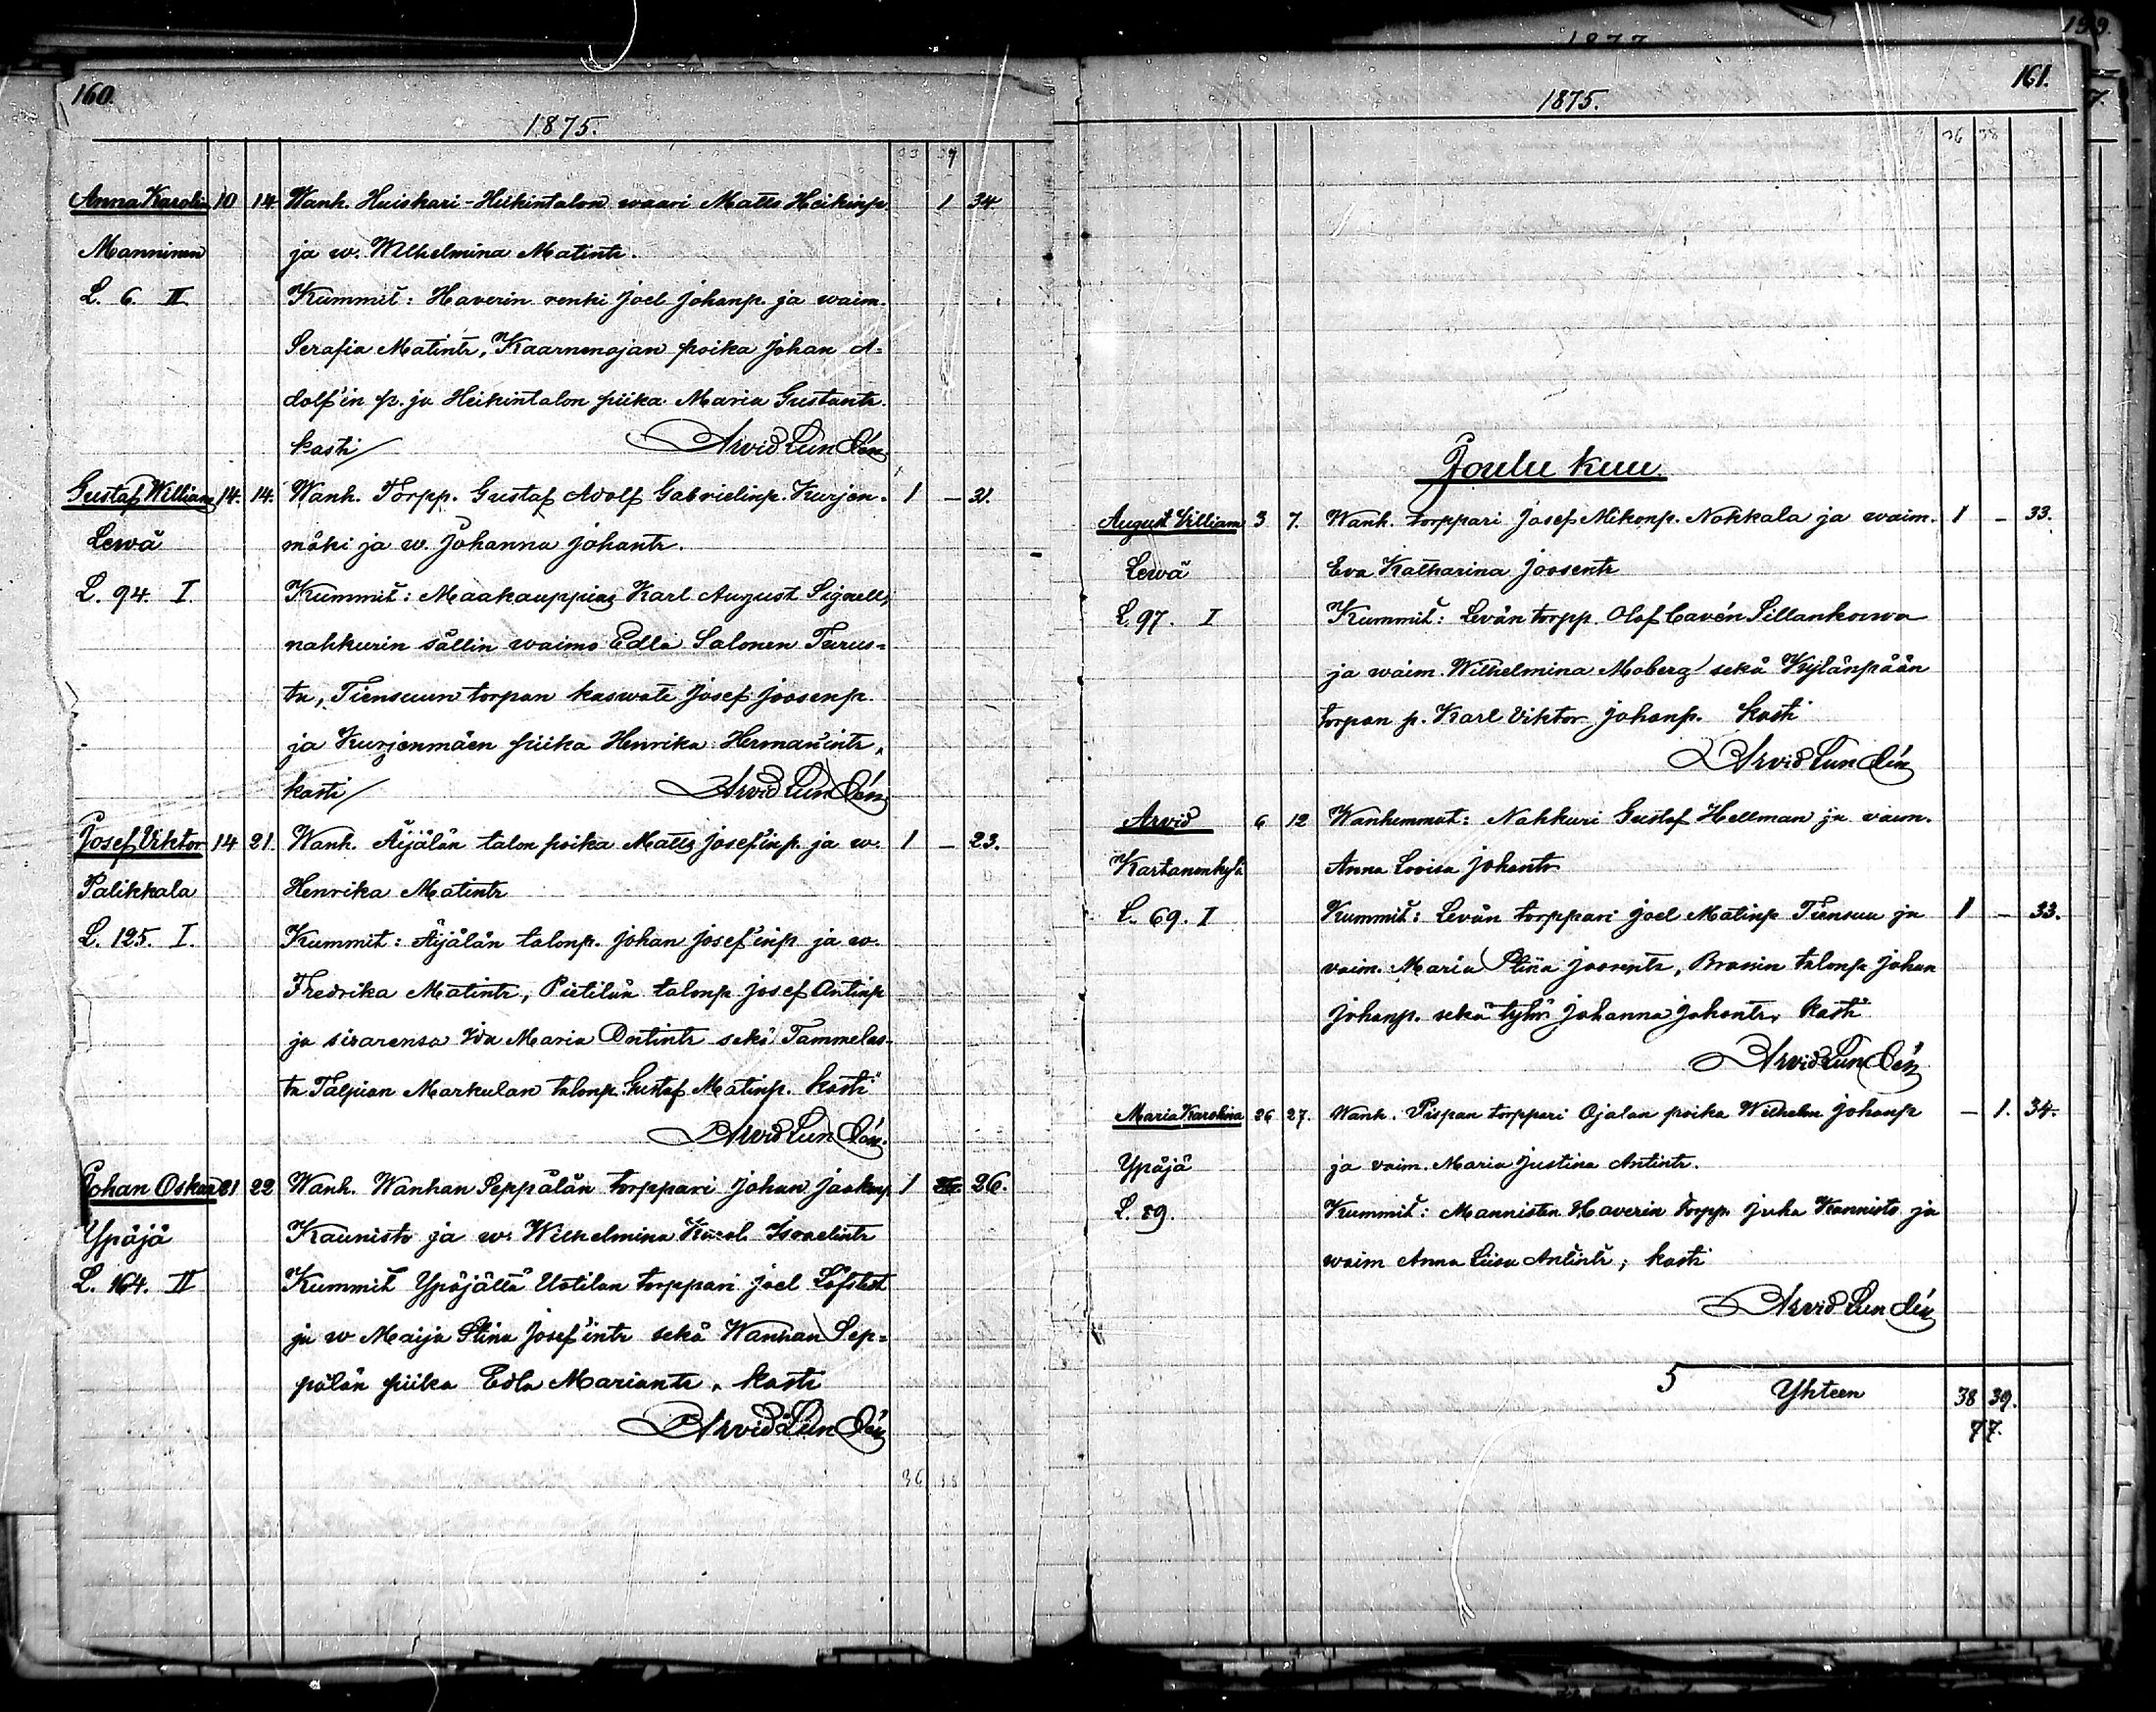 160.
1875.
33 37
Anna Karolin 10 14 Wanh. Huiskari-Heikintalon waari Matts Heikinp. 1 34
Manninen ja w. Wilhelmina Matintr.
L. 6 II Kummit: Haverin renki Joel Johanp. ja waim.
Serafia Matintr, Kaarnenojan poika Johan A-
dolf'in p. ja Heikintalon piika Maria Gustantr.
kasti Arvid Lundén
Gustaf William 14. 14. Wanh. Torpp. Gustaf Adolf Gabrielinp. Kurjen- 1 – 31.
Lewä mäki ja w. Johanna Johantr.
L. 94. I. Kummit: Maakauppias Karl August Signell,
nahkurin sällin waimo Edla Salonen Turus-
ta, Tiensuun torpan kaswate Josef Joosenp.
ja Kurjenmäen piika Henrika Herman'intr,
kasti Arvid Lundén
Josef Viktor 14 21. Wanh. Äijälän talon poika Matts Josef'inp. ja w. 1 – 23.
Palikkala Henrika Matintr
L. 125. I. Kummit: Äijälän talonp. Johan Josef'inp ja w.
Fredrika Matintr, Pietilän talonp Josef Antinp
ja sisarensa Ida Maria Antintr sekä Tammelas-
ta Talpian Markulan talonp. Gustaf Matinp. kasti
Arvid Lundén.
Johan Oskar 21 22 Wanh. Wanhan Seppälän torppari Johan Jaakonp. 1 26.
Ypäjä Kaunisto ja w. Wilhelmina Karol. Israelintr
L. 164. II Kummit Ypäjältä Uotilan torppari Joel Löfstedt
ja w Maija Stina Josef'intr sekä Wanhan Sep-
pälän piika Edla Mariantr. kasti
Arvid Lundén
36 38
161.
1875.
36 38
Joulu kuu.
August Villiam 3 7. Wanh. torppari Josef Mikonp. Nokkala ja waim. 1 – 33.
Lewä Eva Katharina Joosentr
L. 97. I Kummit: Levän torpp. Olof Cavén Sillankorwa
ja waim. Wilhelmina Moberg sekä Kylänpään
torpan p. Karl Viktor Johanp. kasti
Arvid Lundén
Arvid 6 12 Wanhemmat: Nahkuri Gustaf Hellman ja vaim.
Kartanonkylä Anna Lovisa Johantr
L. 69. I Kummit: Levän torppari Joel Matinp Tiensuu ja 1 – 33.
vaim. Maria Stina Joosentr, Brasin talonp Johan
Johanp. sekä tytär Johanna Johantr. kasti
Arvid Lundén
Maria Karolina 26 27. Wanh. Piispan torppari Ojalan poika Wilhelm Johanp – 1. 34.
Ypäjä ja vaim. Maria Justina Antintr.
L. 89. Kummit: Mannisten Haverin torpp. Juha Kannisto ja
waim Anna Liisa Antintr; kasti
Arvid Lundén
5 Yhteen 38 39.
77.